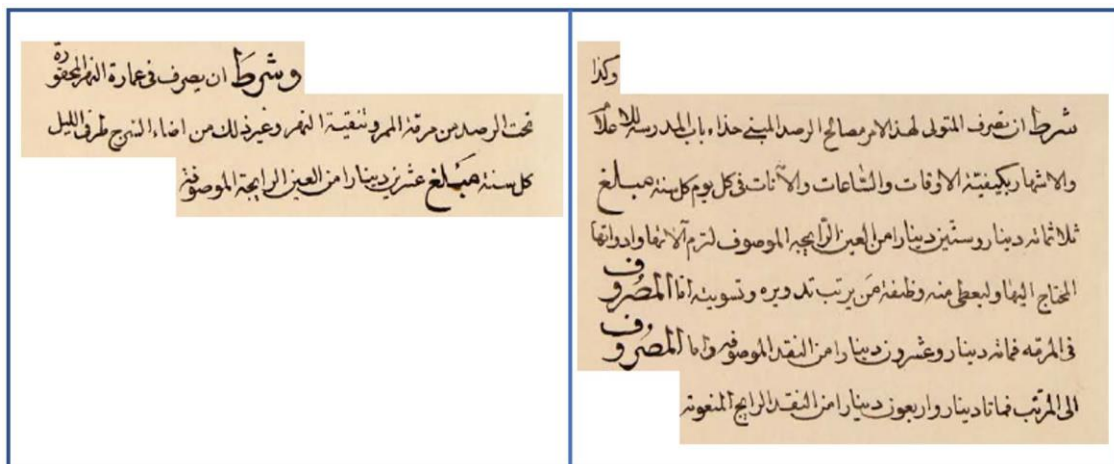 وكذا
شرط ان يصرف المتولى لهذا الامر مصالح الرصد المبنى حذاء باب المدرسة للاعلام
والاشهار بكيفية الاوقات والساعات والآنات فى كل يوم كل سنة مبلغ
ثلاثمائة دينار وستين دينارا من العين الرايجة الموصوف لترم آلاتها وادواتها
المحتاج اليها وليعطى منه وظيفة من يرتب تدويره وتسويته اما المصروف
فى المرمه فمائة دينار وعشرون دينارا من النقد الموصوفه واما المصروف
الى المرتب فمائتا دينار واربعون دينارا من النقد الرايج المنعوته
وشرط ان يصرف فى عمارة النهر المحفورة
تحت الرصد من مرمة الممر وتنقية النهر وغير ذلك من اضاء السرج طرفى الليل
كل سنة مبلغ عشرين دينارا من العين الرايجة الموصوفة